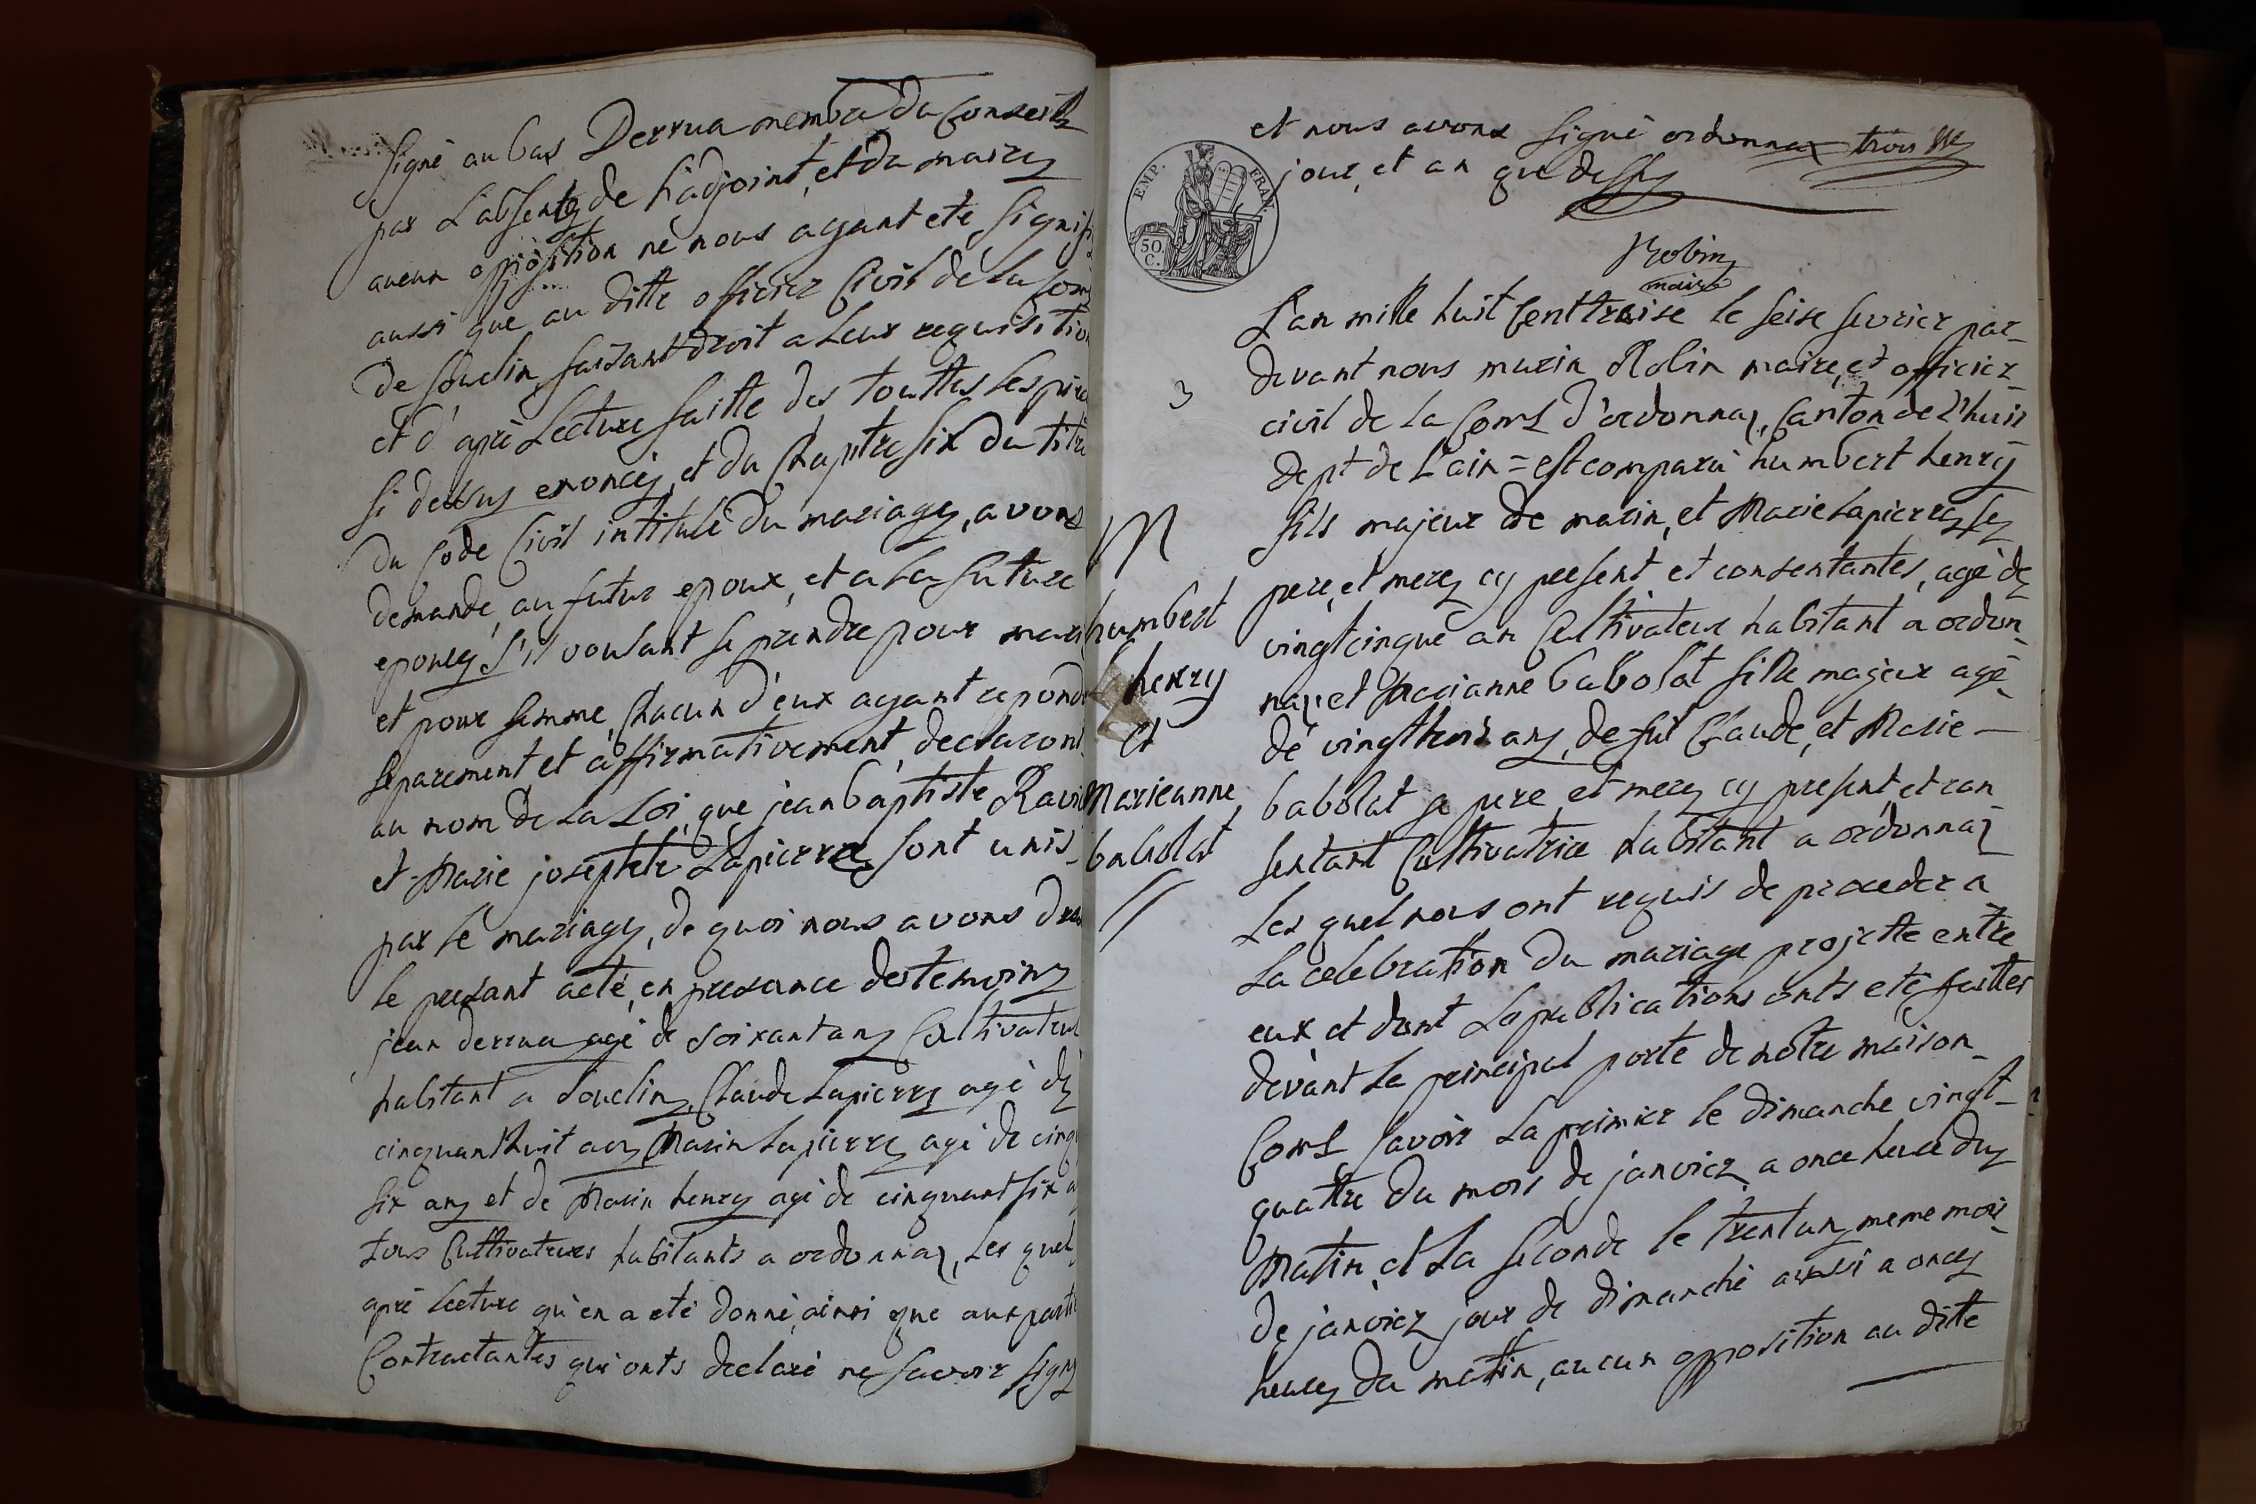 signé au bas Derrua membre du Conseill
par L'absente de L'adjoint, et du maire
aucun opposition ne nous ayant eté signifi
aussi que au ditte officier Civil de la Com
de souclin, faisant droit a Leur requisition
et d'aprè Lecture faitte des touttes Les pièc
si dessus enoncés, et du Chapitre six du titre
du Code Civil intitulé du mariage, avons
demandé, au futur epoux, et a La future
epouse, s'il voulant se prendre pour mari
et pour femme, Chacun d'eux ayant repondu
séparement et affirmativement, declarons
au nom de La Loi, que jean baptiste Ravi
et Marie josephte Lapierre, sont unis
par le mariage, de quoi nous avons dres
le presant acte, en presance des temoins
jean derrua agé de soixant ans Cultivateur
habitant a souclin, Claude Lapierre agé de
cinquant huit ans Marin Lapierre agé de cinq
six ans et de Marin henry agé de cinquant six a
tous Cultivateurs habitants a ordonnaz, Les quel
aprè Lecture qu'en a eté donné, ainsi que aux parti
Contractantes qui onts declaré ne savoir signe
et nous avons signé ordonnaz trois
jour, et an que dessus
EMP. FRAN.
50 C.
Robin
maire
L'an mille huit Cent treise le seise fevrier par
devant nous marin Robin maire, et officier
3
civil de La Com d'ordonnaz, Canton de L'huis
dept de L'ain = est comparu humbert henry
fils majeur de marin, et Marie Lapierre, se
pere, et mere, cy present et consentantes, agé de
vingtcinque an Cultivateur habitant a ordon
naz, et Marianne babolat fille majeur agé
de vingttrois ans, de fut Claude, et Marie
babolat se pere et mere, cy present, et con
sentant Cultivatrice habitant a ordonnaz
Les quel nous ont requis de proceder a
La celebration du mariage projette entre
eux et dont Les publications onts eté faittes
devant La principal porte de notre maison
Com savoir La primier le dimanche vingt
quattre du mois de janvier a once heure du
Matin, et La seconde le trentun, meme mois
de janvier jour de dimanche aussi a onces
heures du matin, aucun opposition au ditte
M
humbert
henry
et
Marieanne
babolat